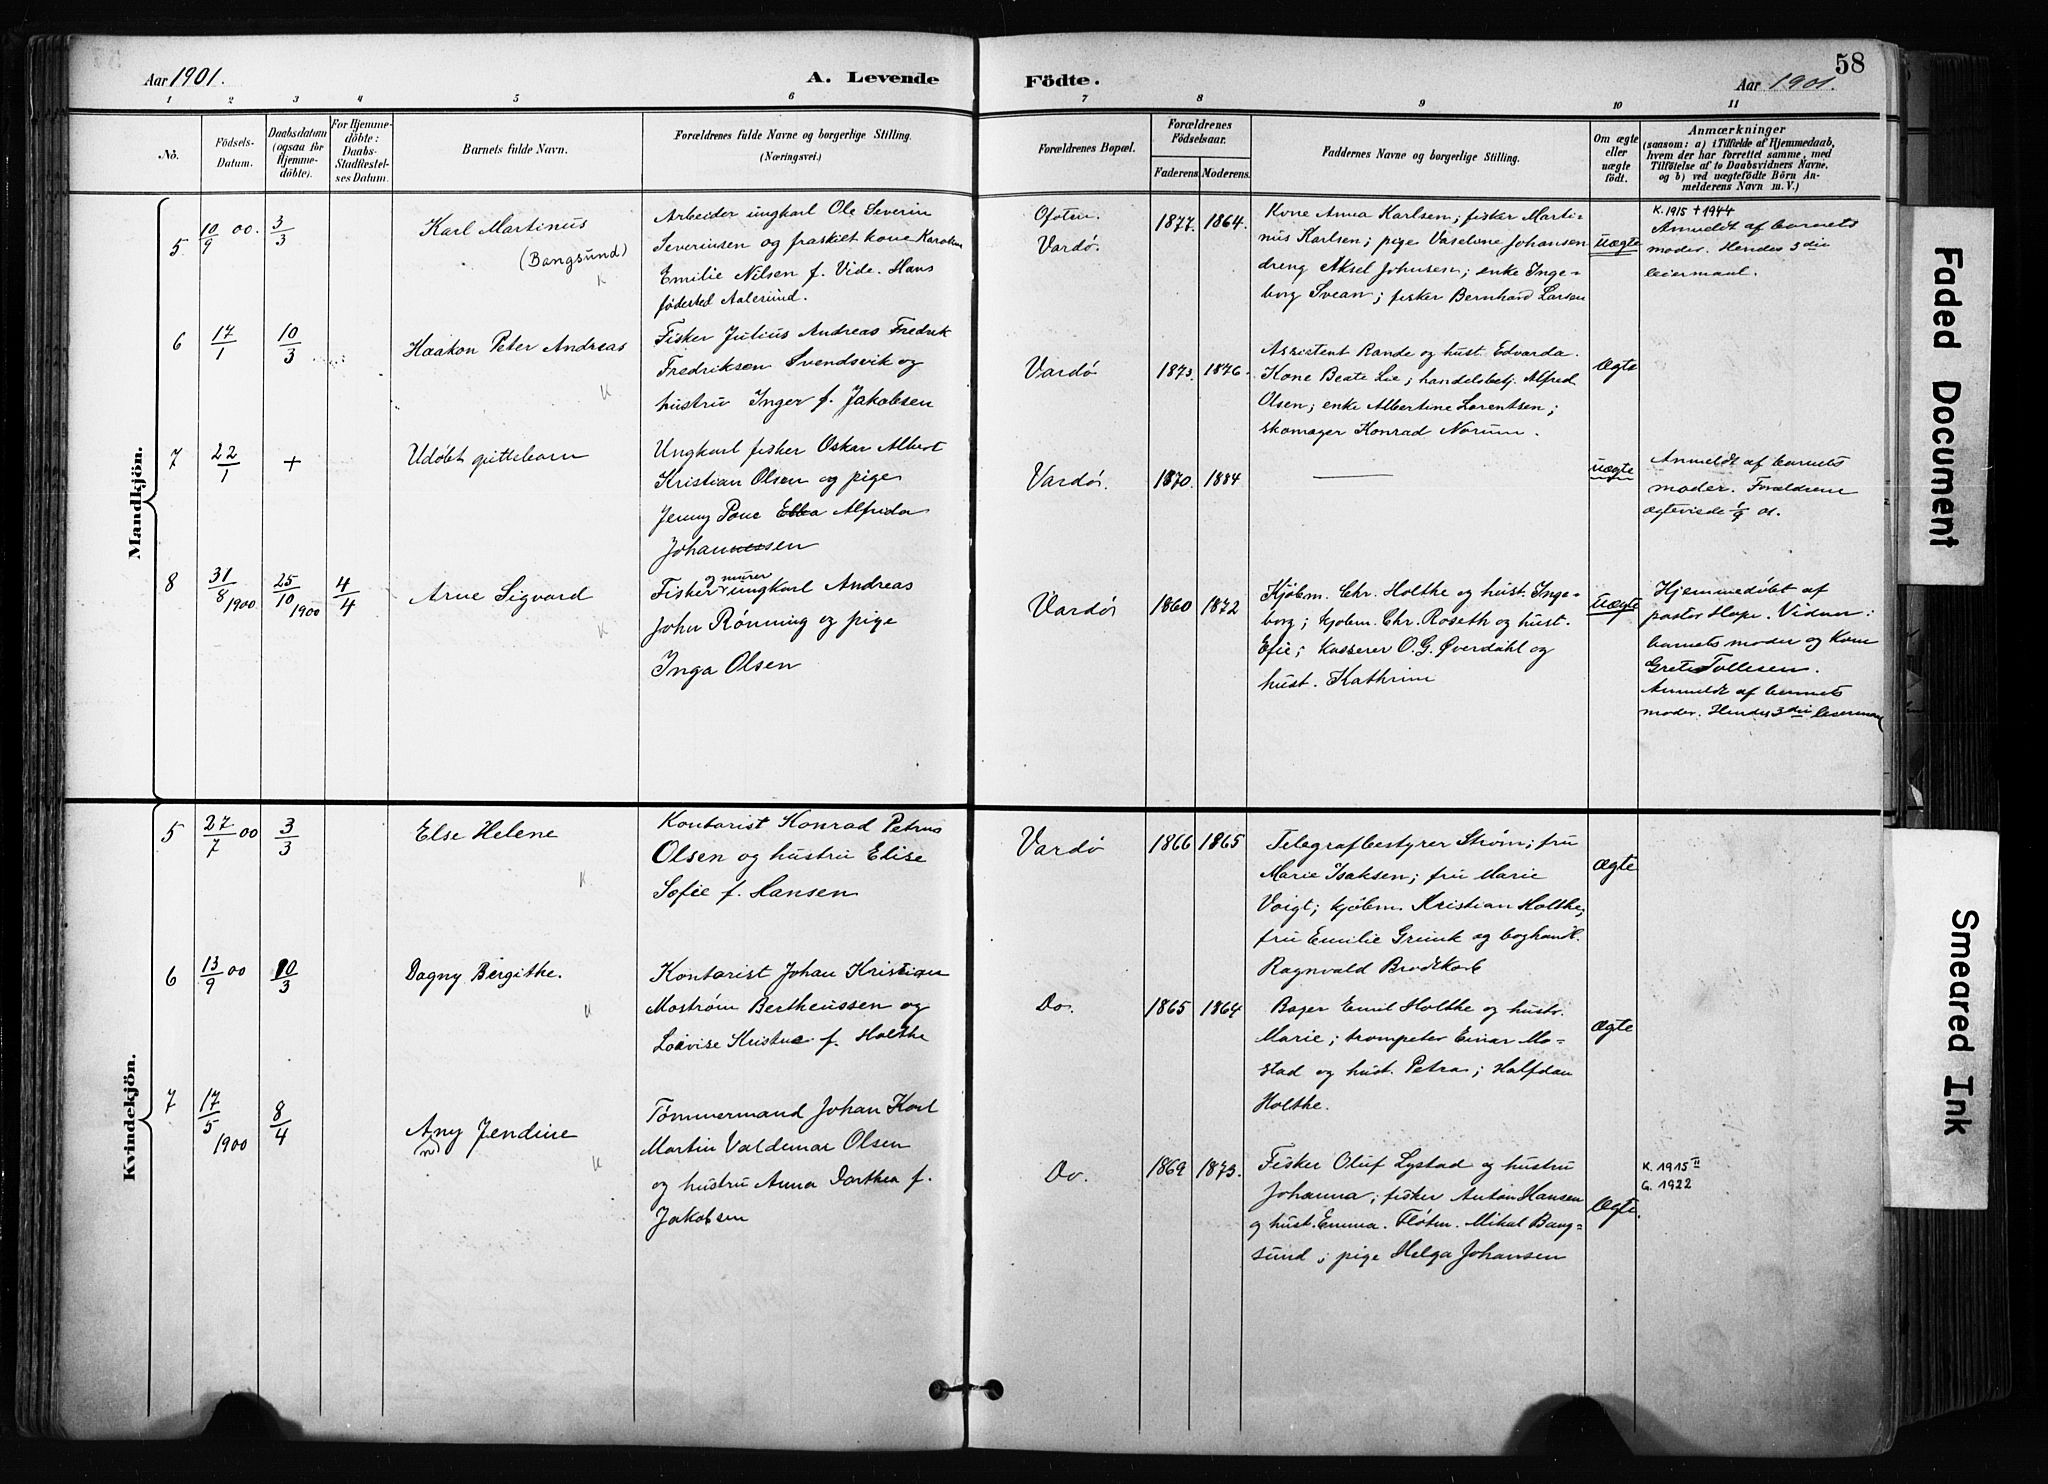 58
Aar 1901.
A. Levende Födte.
Aar 1901.
1 2 3 4 5 6 7 8 9 10 11
No.
Födsels-
Datum.
Daabsdatum
(ogsaa for
Hjemme-
döbte).
For Hjemme-
döbte:
Daabs-
Stadfæstel-
ses Datum.
Barnets fulde Navn.
Forældrenes fulde Navne og borgerlige Stilling.
(Næringsvei.)
Forældrenes Bopæl.
Forældrenes
Födselsaar.
Faderens. Moderens.
Faddernes Navne og borgerlige Stilling.
Om ægte
eller
uægte
födt.
Anmærkninger
(saasom: a) i Tilfælde af Hjemmedaab,
hvem der har forrettet samme, med
Tilföielse af to Daabsvidners Navne,
og b) ved uægtefödte Börn An-
melderens Navn m. V.)
Mandkjön.
5
10/9 00.
3/3
Karl Martinus
(Bangsund)
K
Arbeider ungkarl Ole Severin
Severinsen og fraskilt kone Karoline
Emilie Nilsen f. Vide. Hans
fødested Aalesund.
Ofoten.
Vardø.
1877. 1864.
Kone Anna Karlsen; fisker Marti-
nus Karlsen; pige Vaselone Johansen
dreng Aksel Johnsen; enke Inge-
borg Svean; fisker Bernhard Larsen
Uægte
K. 1915 + 1944
Anmeldt af barnets
moder. Hendes 3die
leiermaal.
6
17/1
10/3
Haakon Peter Andreas
K
Fisker Julius Andreas Fredrik
Fredriksen Svendsvik og
hustru Inger f. Jakobsen
Vardø
1873. 1876.
Assistent Rande og hust. Edvarda.
Kone Beate Lie; handelsbetj. Alfred
Olsen; enke Albertine Lorentsen;
skomager Konrad Norum.
Ægte
7
22/1
+
Udøbt guttebarn
Ungkarl fisker Oskar Albert
Kristian Olsen og pige
Jenny Pone Ebba Alfrida
Johannessen
Vardø.
1870. 1884
—
Uægte
Anmeldt af barnets
moder. Forældrene
ægteviede 1/9 01.
8
31/8 1900
25/10 1900
4/4
Arne Sigvard
K
og murer
Fisker ungkarl Andreas
John Rønning og pige
Inga Olsen
Vardø
1860 1872
Kjøbm. Chr. Holthe og hust. Inge-
borg; kjøbm. Chr. Roseth og hust.
Efie; kasserer O. G. Øverdahl og
hust. Kathrine
Uægte
Hjemmedøbt af
pastor Hope. Vidner:
barnets moder og kone
Grete Tollesen.
Anmeldt af barnets
moder. Hendes 3die leiermaal
Kvindekjön.
5
27/7 00
3/3
Else Helene
K
Kontorist Konrad Petrus
Olsen og hustru Elise
Sofie f. Hansen
Vardø
1866 1865
Telegrafbestyrer Strøm; fru
Marie Isaksen; fru Marie
Voigt; kjøbm. Kristian Holthe;
fru Emilie Grunk og boghandl.
Ragnvald Brodtkorb
Ægte
6
13/9 00
10/3
Dagny Bergithe.
K
Kontorist Johan Kristian
Mostrøm Bertheussen og
Lovise Kristine f. Holthe
Do.
1865 1864
Bager Emil Holthe og hustr.
Marie; trompeter Einar Mo-
stad og hust. Petra; Halfdan
Holthe.
Ægte
7
17/5 1900
8/4
Any Jendine
K
Tømmermand Johan Karl
Martin Valdemar Olsen
og hustru Anna Dorthea f.
Jakobsen
Do.
1869 1873.
Fisker Oluf Lystad og hustru
Johanna; fisker Anton Hansen
og hust. Emma. Fløtm. Mikal Bang-
sund; pige Helga Johansen
Ægte.
K. 1915 II
G. 1922
Faded Document
Smeared Ink